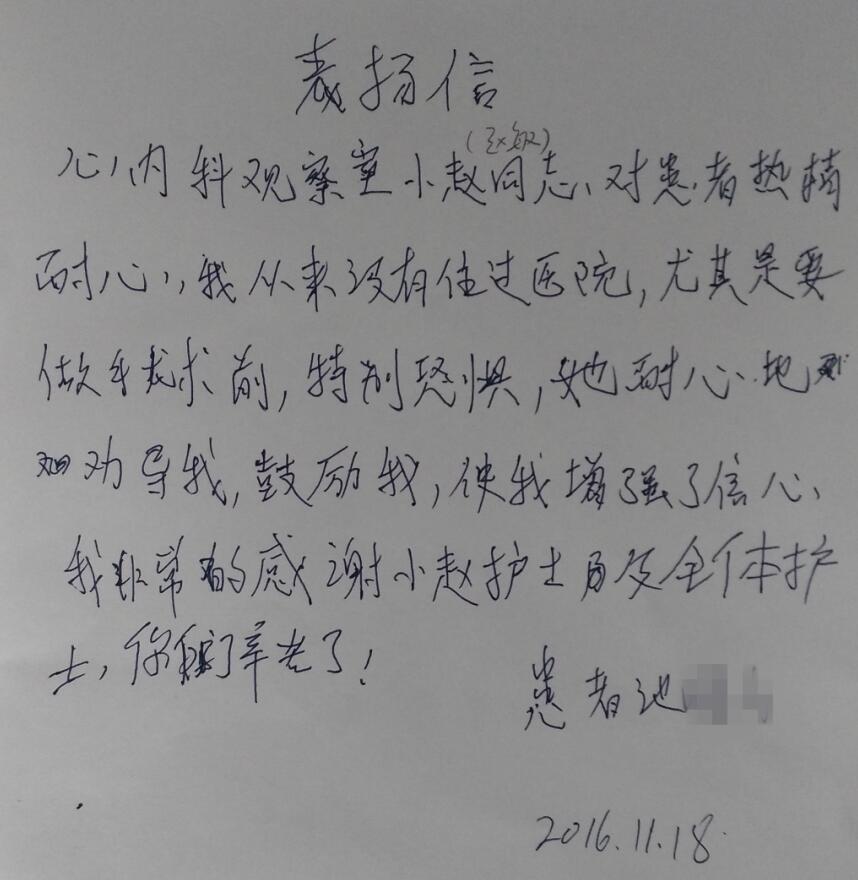 表扬信
(赵敏)
心内科观察室小赵同志、对患者热情
耐心,我从来没有住过医院,尤其是要
做手术前,特别恐惧,她耐心地
劝导我,鼓励我,使我增强了信心、
我非常的感谢小赵护士及全体护
士,你们辛苦了!
患者池
2016.11.18.